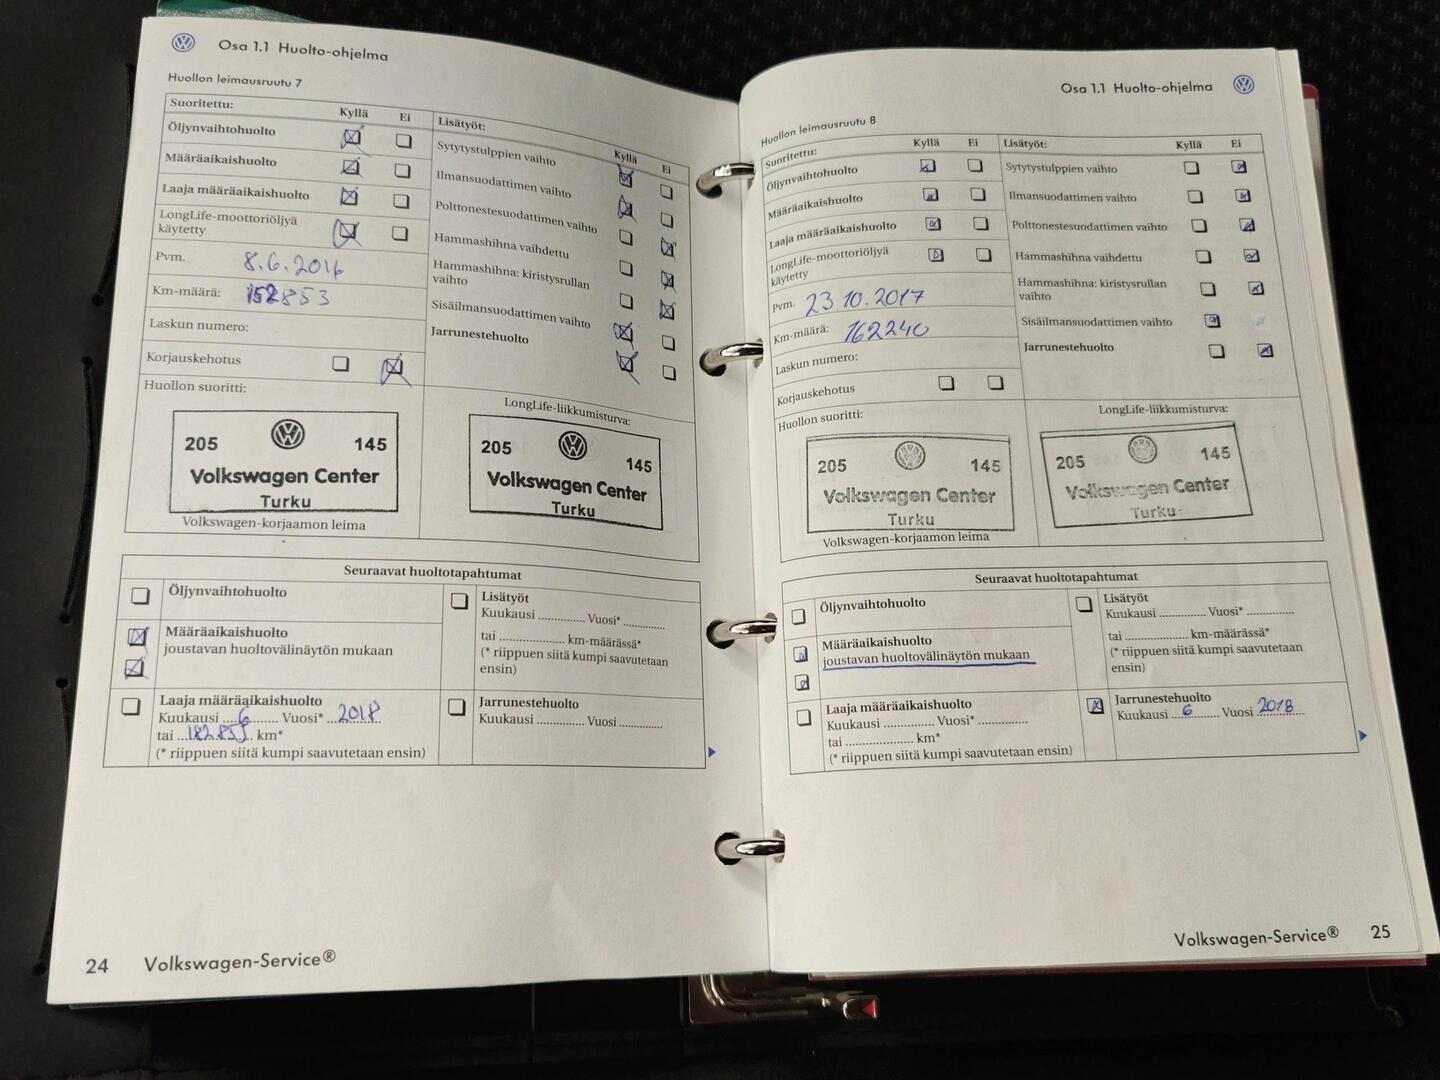 Osa 1.1 Huolto-ohjelma
Huollon leimausruutu 7
Suoritettu:
Kyllä
Ei
Öljynvaihtohuolto
Määräaikaishuolto
Laaja määräaikaishuolto
LongLife-moottoriöljyä
käytetty
Pvm. 8.6.2016
Km-määrä: 152853
Laskun numero:
Korjauskehotus
Lisätyöt:
Kyllä
Ei
Sytytystulppien vaihto
Ilmansuodattimen vaihto
Polttonestesuodattimen vaihto
Hammashihna vaihdettu
Hammashihna: kiristysrullan
vaihto
Sisäilmansuodattimen vaihto
Jarrunestehuolto
Huollon suoritti:
205 145
Volkswagen Center
Turku
Volkswagen-korjaamon leima
LongLife-liikkumisturva:
205 145
Volkswagen Center
Turku
Seuraavat huoltotapahtumat
Öljynvaihtohuolto
Määräaikaishuolto
joustavan huoltovälinäytön mukaan
Laaja määräaikaishuolto
Kuukausi ....6........ Vuosi* ..2018
tai ..182.855.. km*
(* riippuen siitä kumpi saavutetaan ensin)
Lisätyöt
Kuukausi .............. Vuosi* ............
tai .................... km-määrässä*
(* riippuen siitä kumpi saavutetaan
ensin)
Jarrunestehuolto
Kuukausi .............. Vuosi ............
24 Volkswagen-Service®
Osa 1.1 Huolto-ohjelma
Huollon leimausruutu 8
Suoritettu:
Kyllä
Ei
Öljynvaihtohuolto
Määräaikaishuolto
Laaja määräaikaishuolto
LongLife-moottoriöljyä
käytetty
Pvm. 23.10.2017
Km-määrä: 162240
Laskun numero:
Korjauskehotus
Lisätyöt:
Kyllä
Ei
Sytytystulppien vaihto
Ilmansuodattimen vaihto
Polttonestesuodattimen vaihto
Hammashihna vaihdettu
Hammashihna: kiristysrullan
vaihto
Sisäilmansuodattimen vaihto
Jarrunestehuolto
Huollon suoritti:
205 145
Volkswagen Center
Turku
Volkswagen-korjaamon leima
LongLife-liikkumisturva:
205 145
Volkswagen Center
Turku
Seuraavat huoltotapahtumat
Öljynvaihtohuolto
Määräaikaishuolto
joustavan huoltovälinäytön mukaan
Laaja määräaikaishuolto
Kuukausi .............. Vuosi* ..............
tai .................... km*
(* riippuen siitä kumpi saavutetaan ensin)
Lisätyöt
Kuukausi .............. Vuosi* ..............
tai .................... km-määrässä*
(* riippuen siitä kumpi saavutetaan
ensin)
Jarrunestehuolto
Kuukausi ...6........ Vuosi 2018
Volkswagen-Service® 25